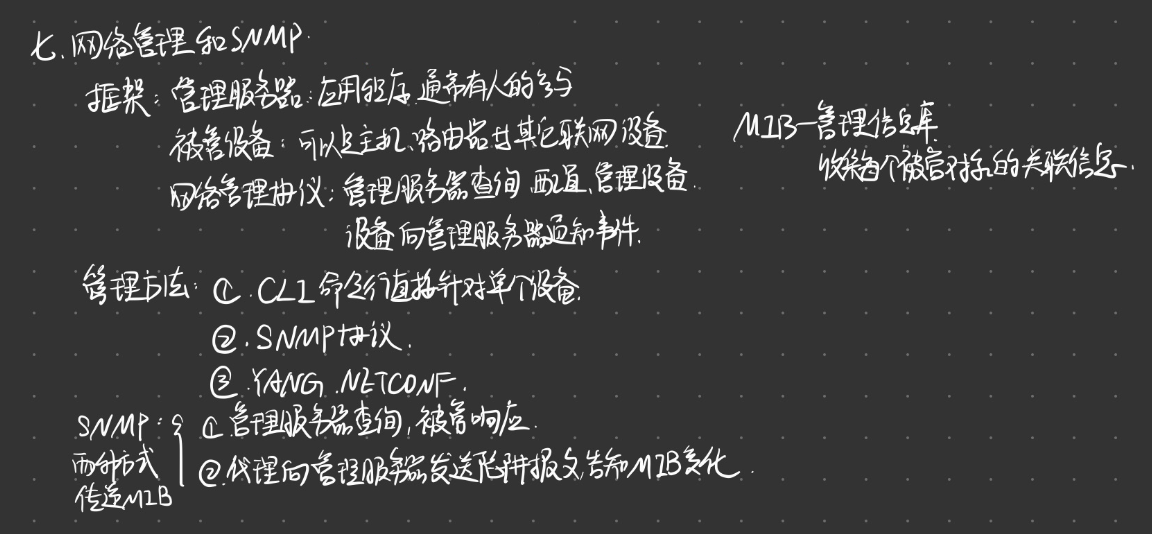 七.网络管理和SNMP.
框架：管理服务器：应用程序.通常有人的参与
被管设备：可以是主机、路由器或其它联网设备.
网络管理协议：管理服务器查询、配置、管理设备.
设备向管理服务器通知事件.
MIB—管理信息库
收集每个被管对象的关联信息.
管理方法：①.CLI 命令行直接针对单个设备.
②.SNMP协议.
③.YANG.NETCONF.
SNMP：
两种方式
传递MIB
①.管理服务器查询,被管响应.
②.代理向管理服务器发送陷阱报文,告知MIB变化.